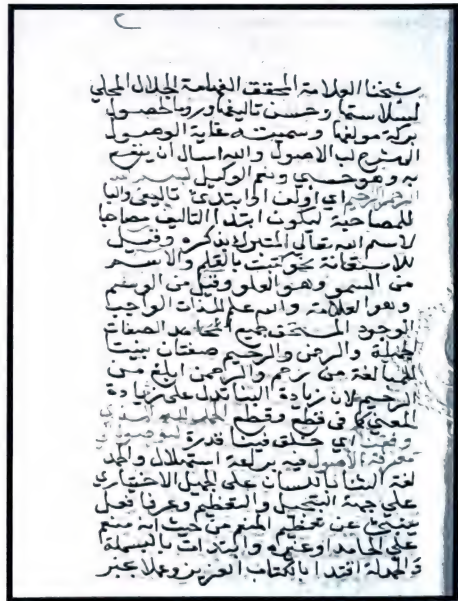 شيخنا العلامة المحقق الفهامة الجلال المحلي
لسلاستها وحسن تاليفها وروما لحصول
بركة مولفها وسميته غاية الوصول
الي شرح لب الاصول والله اسال ان ينفع
به وهو حسبي ونعم الوكيل بسم الله
الرحمن الرحيم اي اولف او ابتدي تاليفي والبا
للمصاحبة ليكون ابتدا التاليف مصاحبا
لاسم الله تعالي المتبرك بذكره وقيل
للاستعانة نحو كتبت بالقلم والاسم
من السمو وهو العلو وقيل من الوسم
وهو العلامة والله علم للذات الواجب
الوجود المستحق لجميع المحامد الصفات
الجميلة والرحمن والرحيم صفتان بنيتا
للمبالغة من رحم والرحمن ابلغ من
الرحيم لان زيادة البنا تدل علي زيادة
المعني كما في قطع وقطع الحمد لله الذي
وفقنا اي خلق فينا قدرة للوصول الي
معرفة الاصول فيه براعة استهلال والحمد
لغة الثنا باللسان علي الجميل الاختياري
علي جهة التبجيل والتعظيم وعرفا فعل
ينبئ عن تعظيم المنعم من حيث انه منعم
علي الحامد او غيره وابتدات بالبسملة
والحمدلة اقتدا بالكتاب العزيز وعملا بخبر